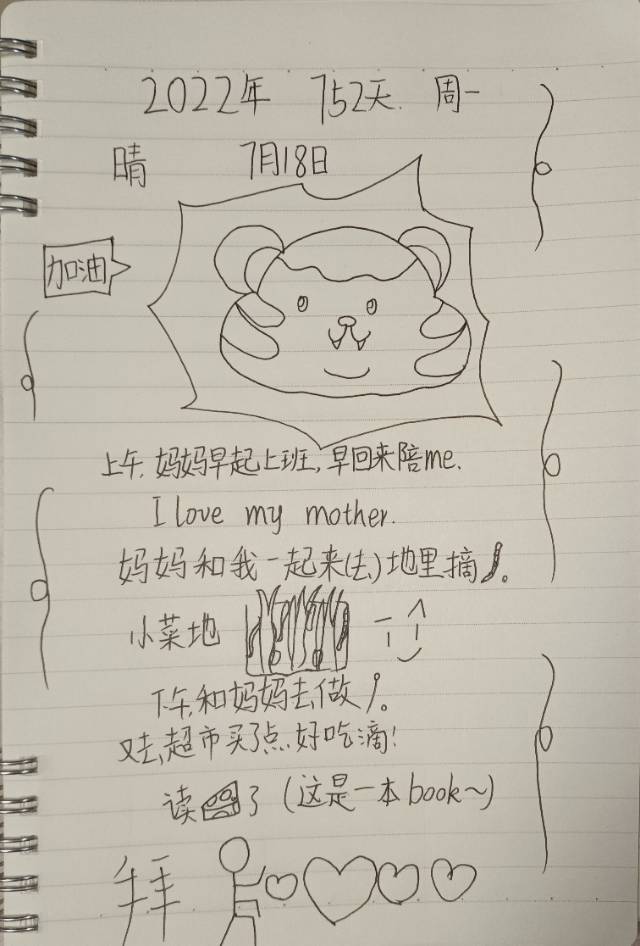 2022年 752天. 周一
晴 7月18日
加油
上午, 妈妈早起上班, 早回来陪me.
I love my mother.
妈妈和我一起来(去)地里摘 。
小菜地
下午,和妈妈去做 。
又去,超市买了点.好吃滴!
读 了 (这是一本book~)
拜